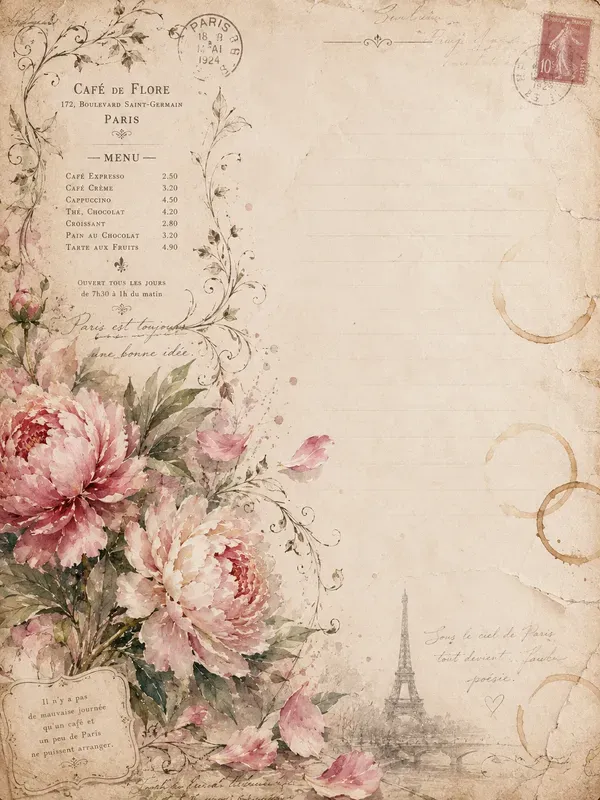 PARIS
18 8
MAI
1924
10
CAFÉ DE FLORE
172, BOULEVARD SAINT-GERMAIN
PARIS
MENU
CAFÉ EXPRESSO 2.50
CAFÉ CRÈME 3.20
CAPPUCCINO 4.50
THÉ, CHOCOLAT 4.20
CROISSANT 2.80
PAIN AU CHOCOLAT 3.20
TARTE AUX FRUITS 4.90
OUVERT TOUS LES JOURS
de 7h30 à 1h du matin
Paris est toujours
une bonne idée.
Sous le ciel de Paris
tout devient
poésie.
Il n'y a pas
de mauvaise journée
qu'un café et
un peu de Paris
ne puissent arranger.